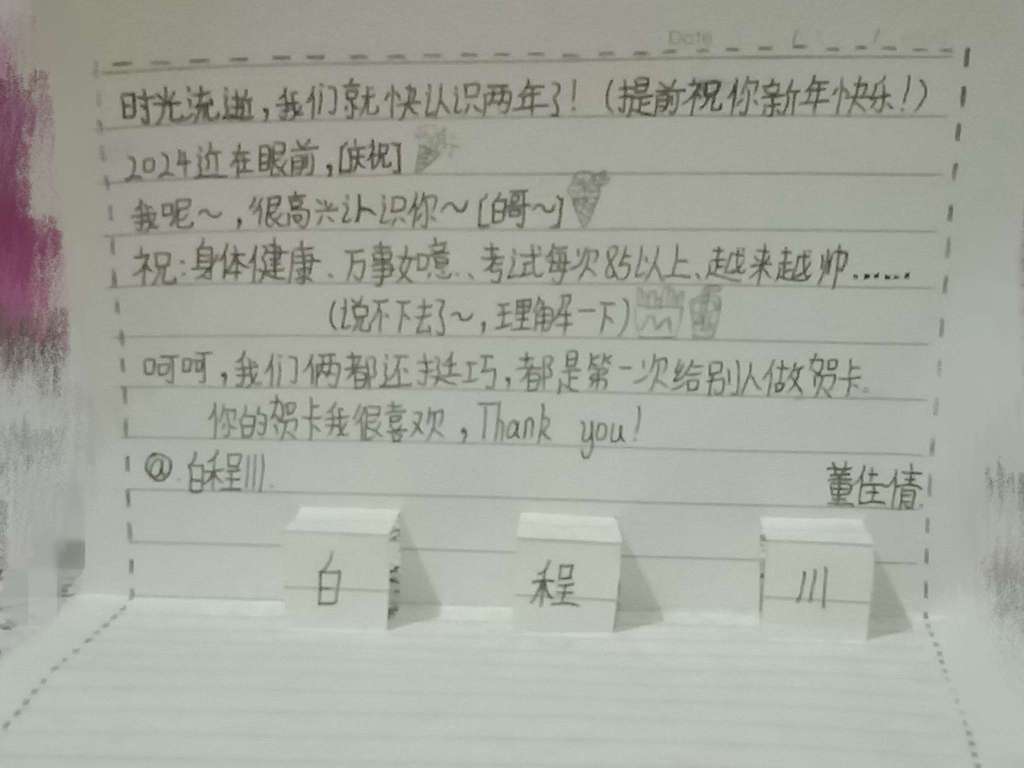 Date / /
时光流逝，我们就快认识两年了！（提前祝你新年快乐！）
2024近在眼前，[庆祝]
我呢～，很高兴认识你～[白哥～]
祝：身体健康、万事如意、考试每次85以上、越来越帅……
（说不下去了～，理解一下）
呵呵，我们俩都还挺巧，都是第一次给别人做贺卡。
你的贺卡我很喜欢，Thank you！
@白程川.
董佳倩
白 程 川